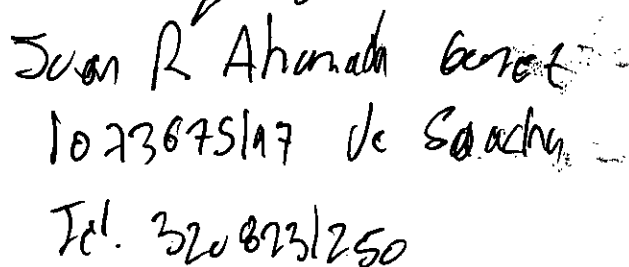 Juan R Ahumada Gomez
1073675197 de Soacha
Tel. 3208231250